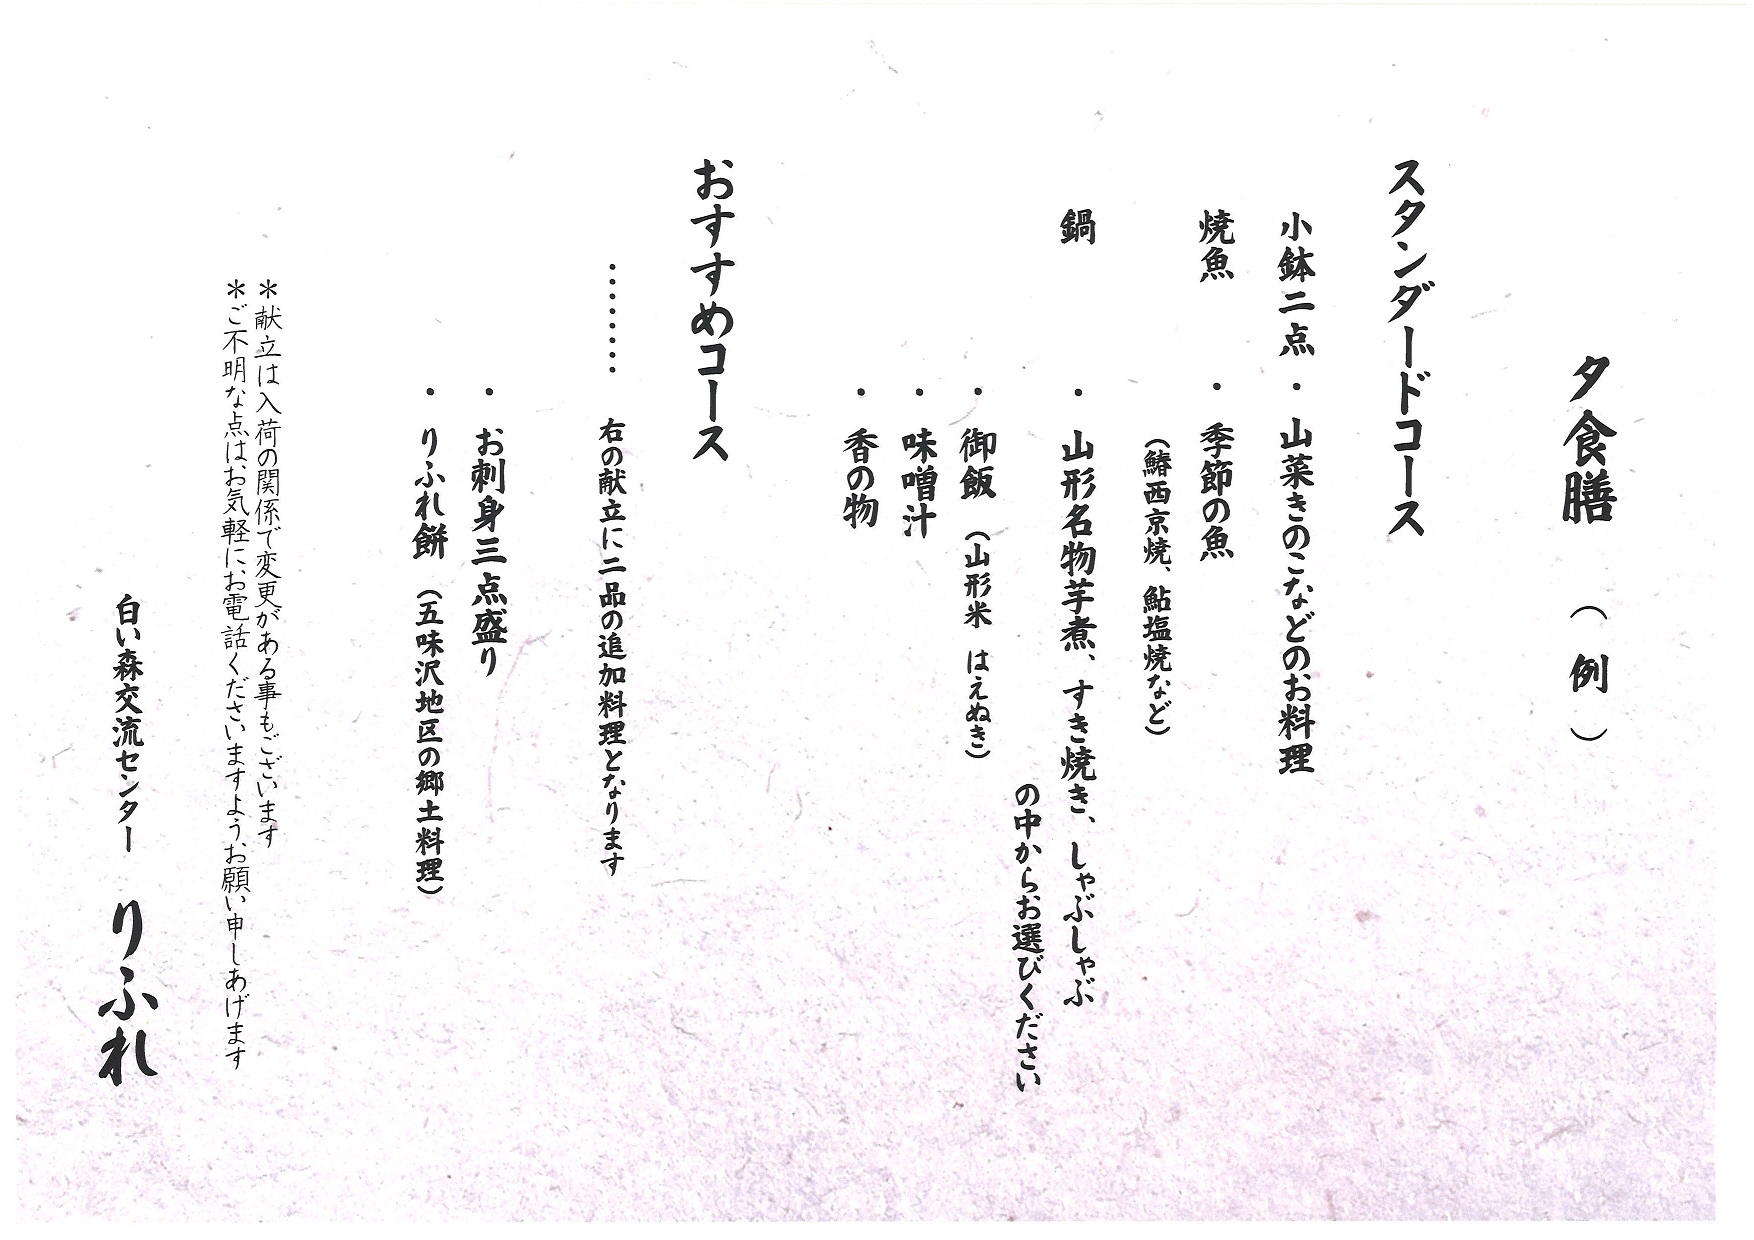 夕食膳 (例)
スタンダードコース
小鉢二点 ・山菜きのこなどのお料理
焼魚 ・季節の魚
(鰆西京焼、鮎塩焼など)
鍋 ・山形名物芋煮、すき焼き、しゃぶしゃぶ
の中からお選びください
・御飯 (山形米 はえぬき)
・味噌汁
・香の物
おすすめコース
・・・・・・・ 右の献立に二品の追加料理となります
・お刺身三点盛り
・りふれ餅 (五味沢地区の郷土料理)
＊献立は入荷の関係で変更がある事もございます
＊ご不明な点はお気軽に、お電話くださいますよう、お願い申しあげます
白い森交流センター りふれ